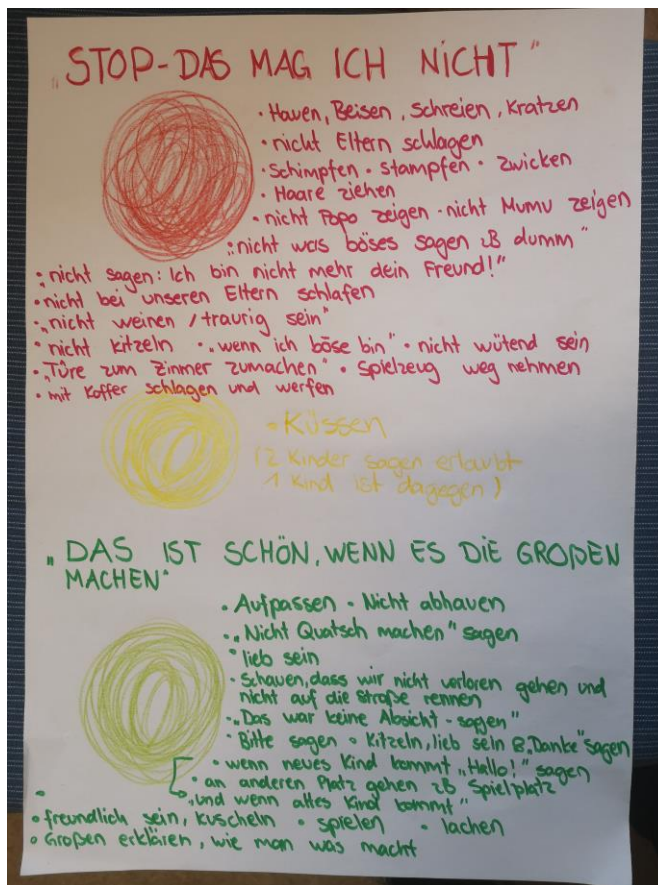 "STOP-DAS MAG ICH NICHT"
• Hauen, Beisen, Schreien, Kratzen
• nicht Eltern schlagen
• Schimpfen • stampfen • zwicken
• Haare ziehen
• nicht Popo zeigen - nicht Mumu zeigen
"nicht was böses sagen zB dumm"
• "nicht sagen: Ich bin nicht mehr dein Freund!"
• nicht bei unseren Eltern schlafen
• "nicht weinen / traurig sein"
• nicht kitzeln • "wenn ich böse bin" • nicht wütend sein
• "Türe zum Zimmer zumachen" • Spielzeug weg nehmen
• mit Koffer schlagen und werfen
• Küssen
(2 Kinder sagen erlaubt
1 Kind ist dagegen)
"DAS IST SCHÖN, WENN ES DIE GROßEN
MACHEN"
• Aufpassen • Nicht abhauen
• "Nicht Quatsch machen" sagen
• lieb sein
• Schauen, dass wir nicht verloren gehen und
nicht auf die Straße rennen
• "Das war keine Absicht - sagen"
• Bitte sagen • Kitzeln, lieb sein "Danke" sagen
• wenn neues Kind kommt "Hallo!" sagen
• an anderen Platz gehen zB Spielplatz
"und wenn altes Kind kommt"
• freundlich sein, kuscheln • spielen • lachen
• Großen erklären, wie man was macht